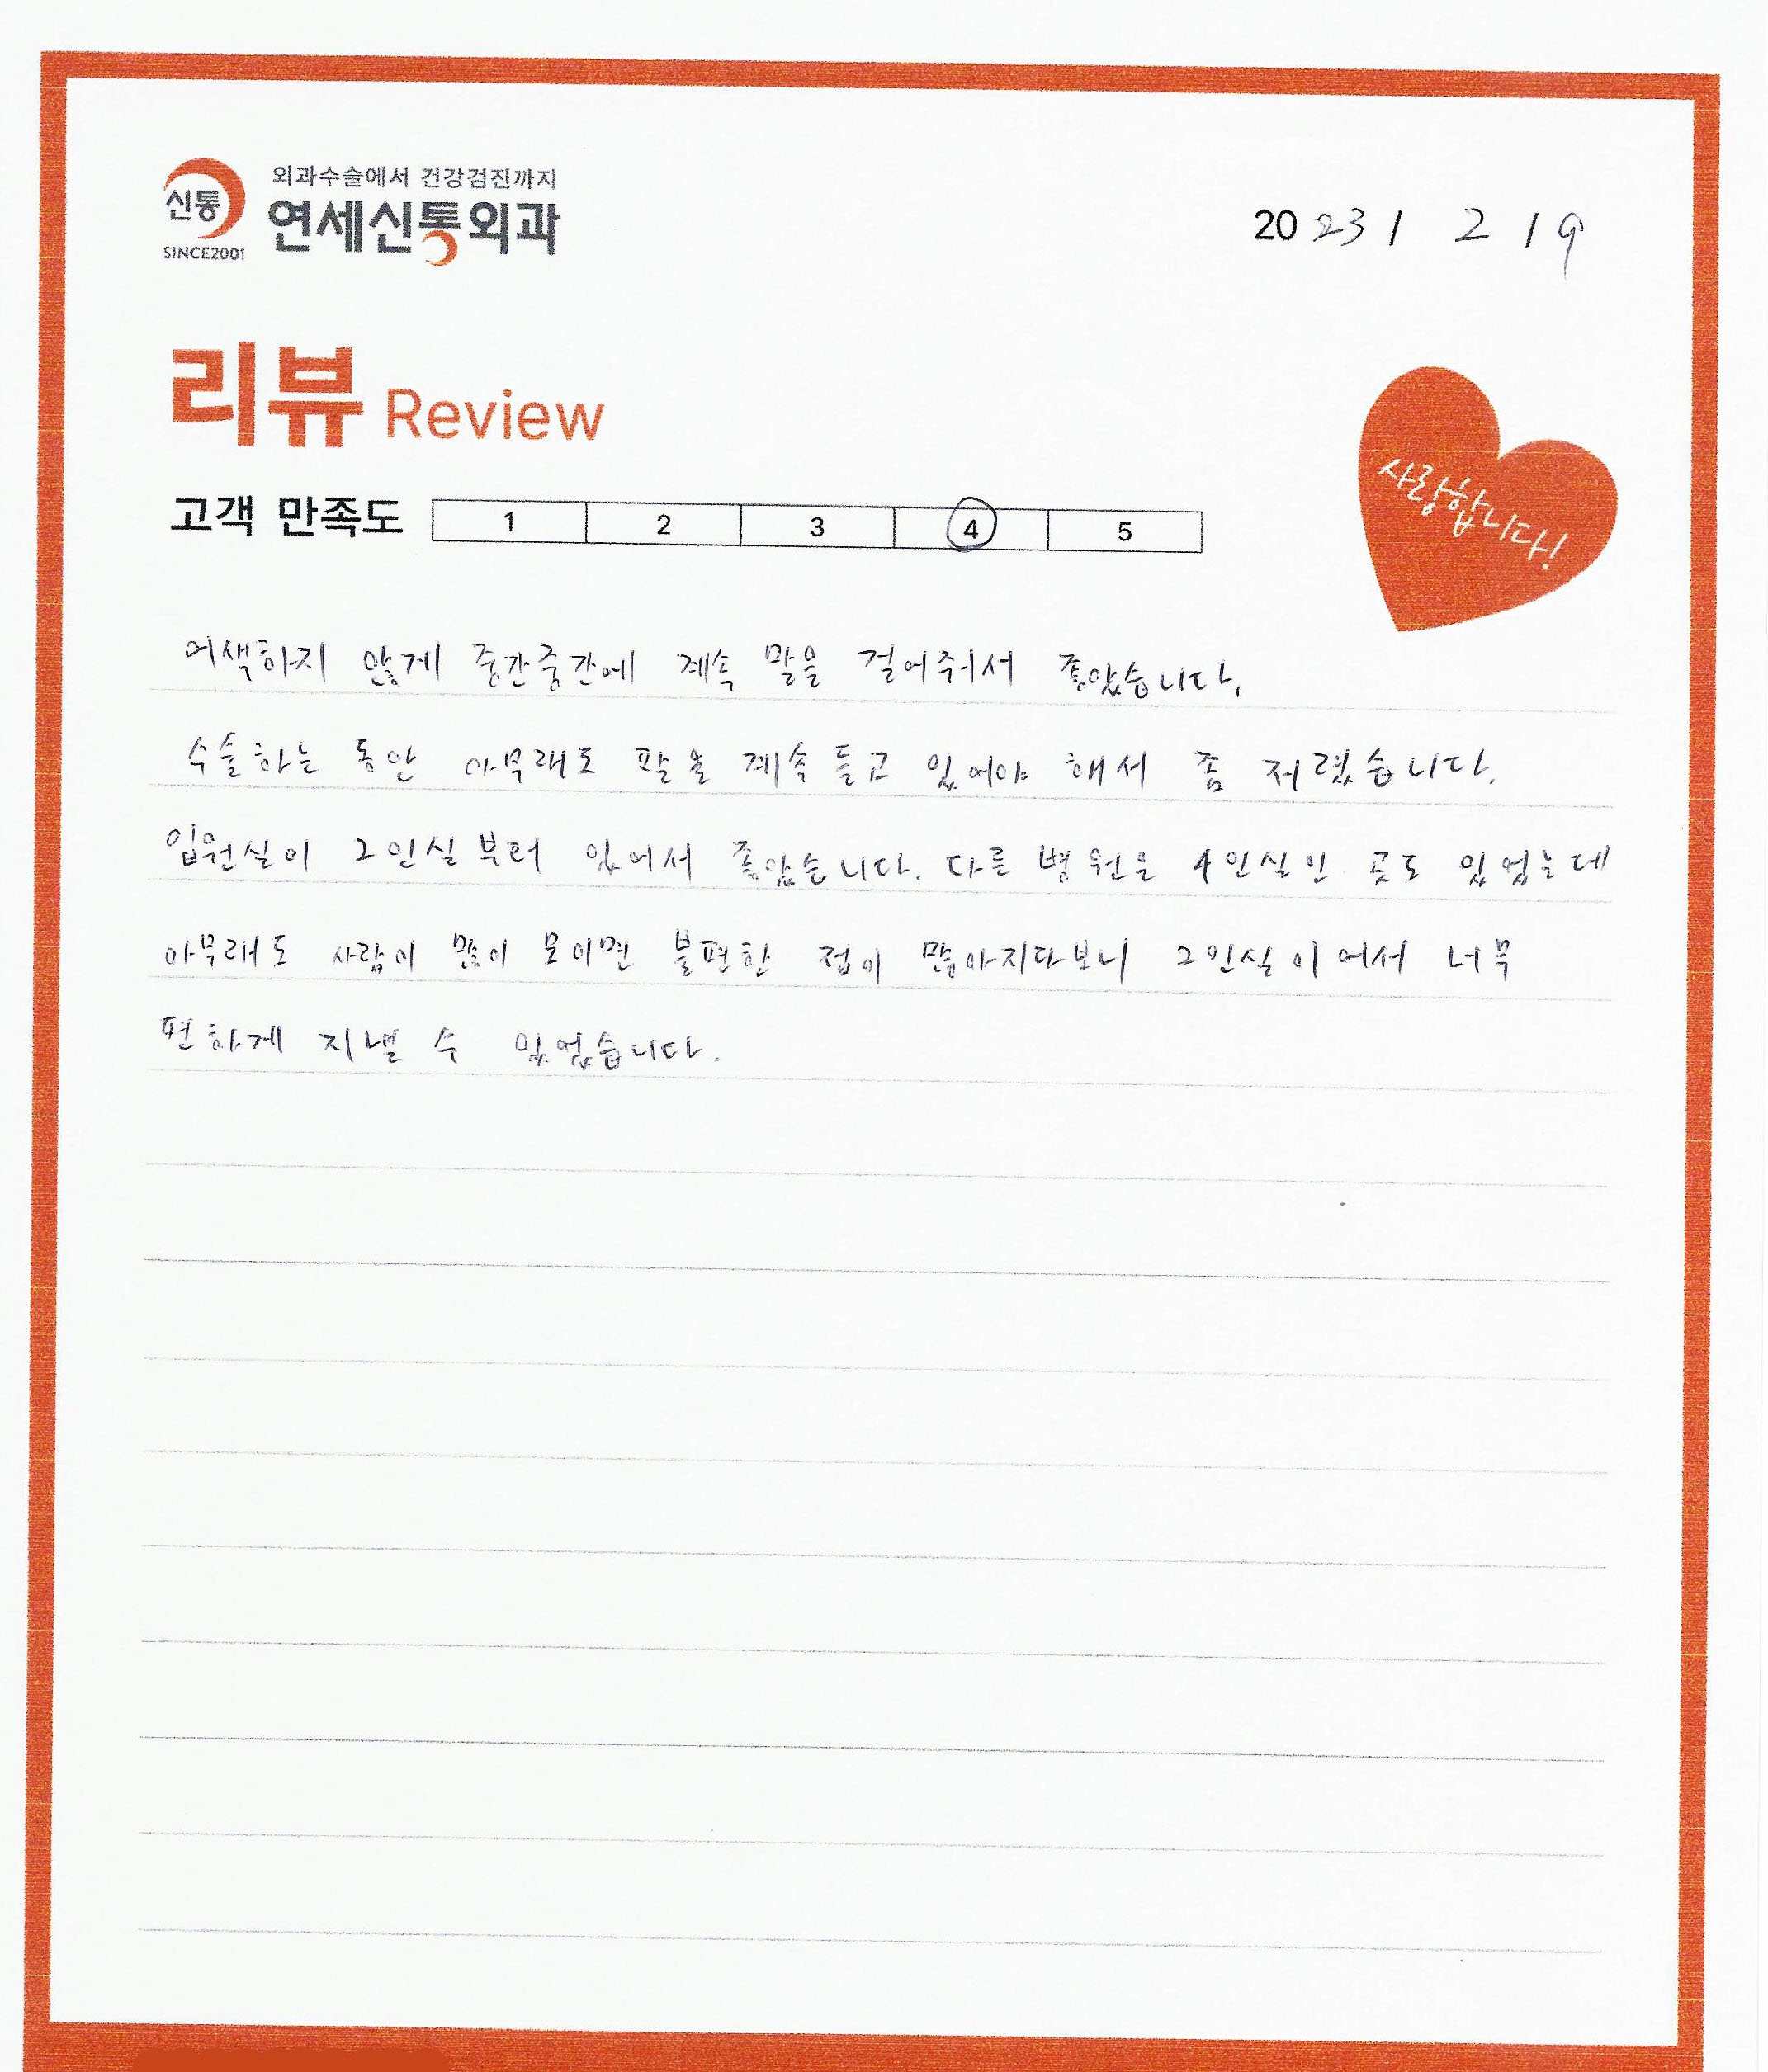 외과수술에서 건강검진까지
신통 연세신통외과
SINCE2001
2023 / 2 / 9
리뷰 Review
사랑합니다!
고객 만족도 1 2 3 4 5
어색하지 않게 중간중간에 계속 말을 걸어줘서 좋았습니다.
수술하는 동안 아무래도 팔을 계속 들고 있어야 해서 좀 저렸습니다.
입원실이 2인실부터 있어서 좋았습니다. 다른 병원은 4인실인 곳도 있었는데
아무래도 사람이 많이 모이면 불편한 점이 많아지다보니 2인실이어서 너무
편하게 지낼 수 있었습니다.